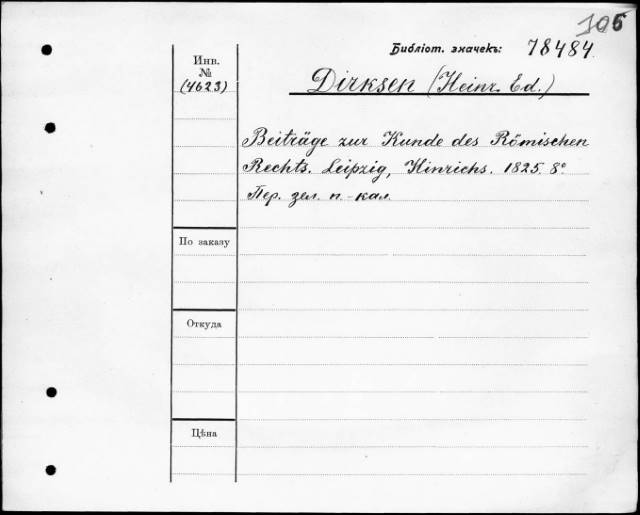 105
Библіот. значекъ: 78484.
Инв.
№
(4623)
Dirksen (Heinr. Ed.)
Beiträge zur Kunde des Römischen
Rechts. Leipzig, Hinrichs. 1825. 8°
Пер. зел. п.-кал.
По заказу
Откуда
Цѣна